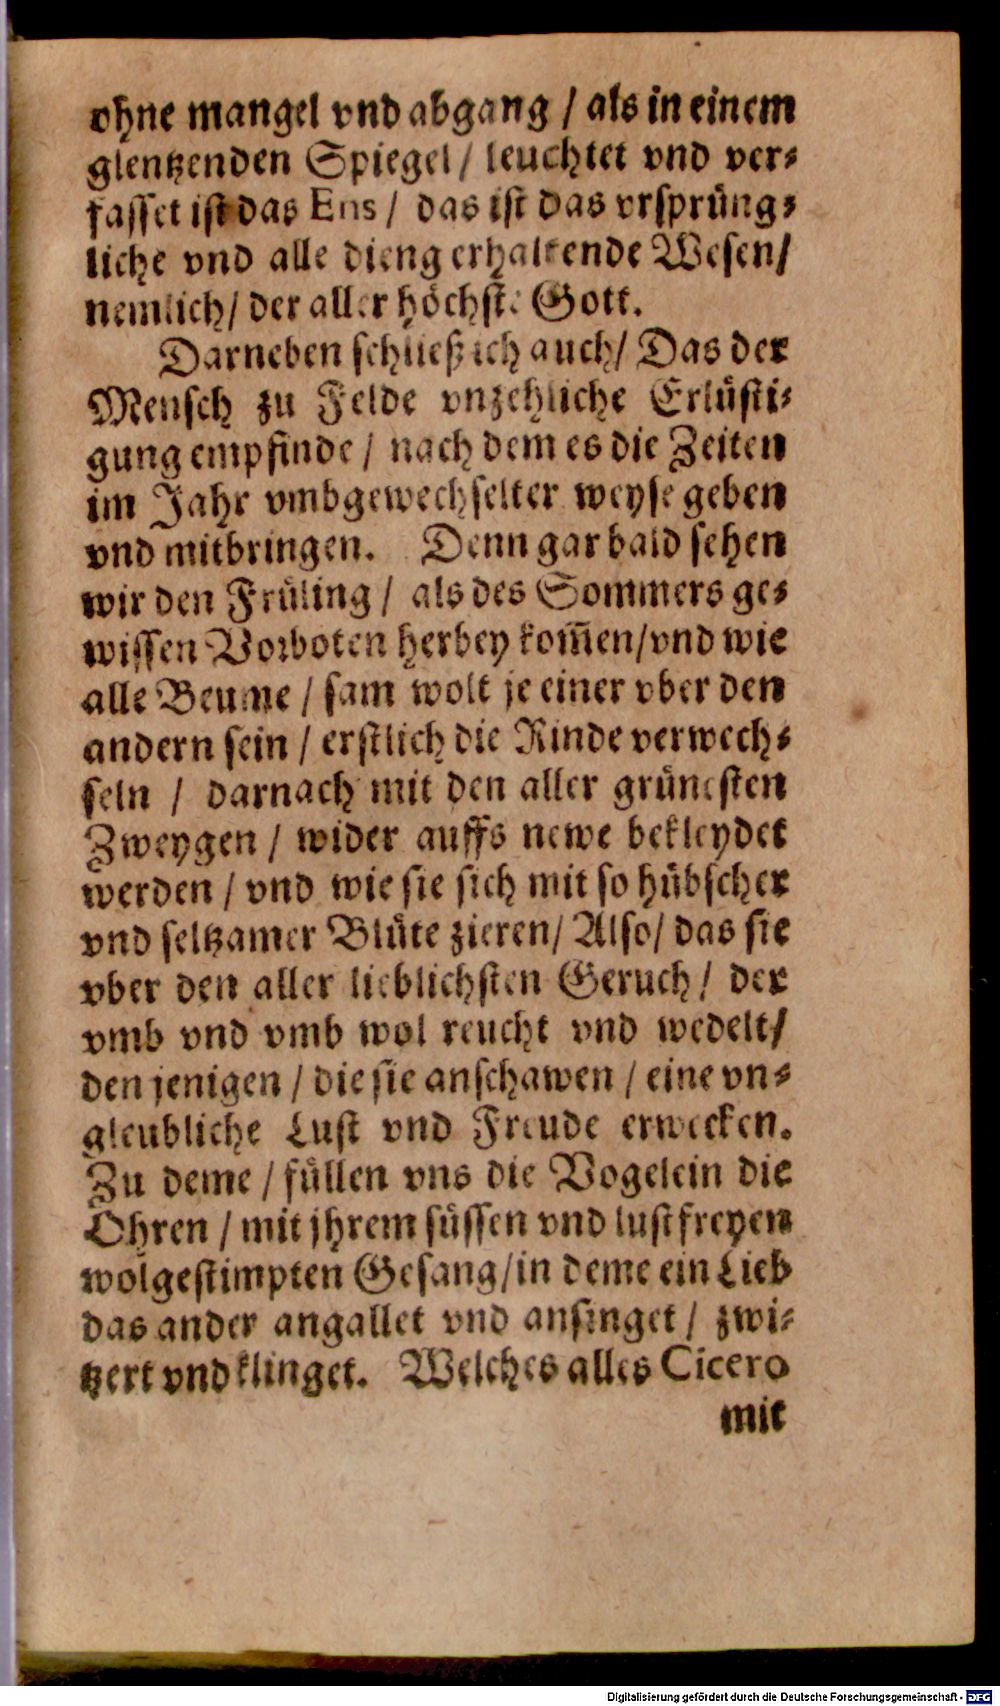 ohne mangel vnd abgang / als in einem
glentzenden Spiegel / leuchtet vnd ver-
fasset ist das Ens / das ist das vrsprüng-
liche vnd alle dieng erhaltende Wesen /
nemlich / der aller höchste Gott.
Darneben schließ ich auch / Das der
Mensch zu Felde vnzehliche Erlüsti-
gung empfinde / nach dem es die Zeiten
im Jahr vmbgewechselter weyse geben
vnd mitbringen. Denn gar bald sehen
wir den Früling / als des Sommers ge-
wissen Vorboten herbey kom̃en / vnd wie
alle Beume / sam wolt je einer vber den
andern sein / erstlich die Rinde verwech-
seln / darnach mit den aller grünesten
Zweygen / wider auffs newe bekleydet
werden / vnd wie sie sich mit so hübscher
vnd seltzamer Blüte zieren / Also / das sie
vber den aller lieblichsten Geruch / der
vmb vnd vmb wol reucht vnd wedelt /
den jenigen / die sie anschawen / eine vn-
gleubliche Lust vnd Freude erwecken.
Zu deme / füllen vns die Vogelein die
Ohren / mit jhrem süssen vnd lustfreyen
wolgestimpten Gesang / in deme ein Lieb
das ander angallet vnd ansinget / zwi-
tzert vnd klinget. Welches alles Cicero
mit
Digitalisierung gefördert durch die Deutsche Forschungsgemeinschaft - DFG